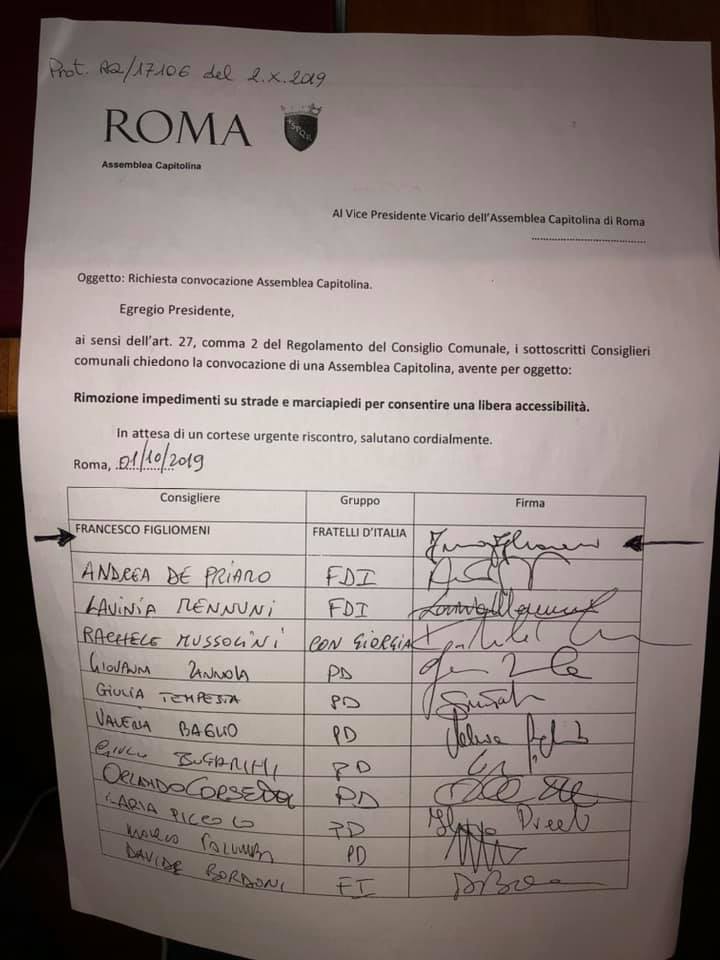 Prot. RQ/17106 del 2.X.2019
ROMA
SPQR
Assemblea Capitolina
Al Vice Presidente Vicario dell'Assemblea Capitolina di Roma
Oggetto: Richiesta convocazione Assemblea Capitolina.
Egregio Presidente,
ai sensi dell'art. 27, comma 2 del Regolamento del Consiglio Comunale, i sottoscritti Consiglieri
comunali chiedono la convocazione di una Assemblea Capitolina, avente per oggetto:
Rimozione impedimenti su strade e marciapiedi per consentire una libera accessibilità.
In attesa di un cortese urgente riscontro, salutano cordialmente.
Roma, 01/10/2019
Consigliere Gruppo Firma
FRANCESCO FIGLIOMENI FRATELLI D'ITALIA
ANDREA DE PRIAMO FDI
LAVINIA MENNUNI FDI
RACHELE MUSSOLINI CON GIORGIA
GIOVANNI ZANNOLA PD
GIULIA TEMPESTA PD
VALERIA BAGLIO PD
GIULIO BUGARINI PD
ORLANDO CORSETTI PD
ILARIA PICCOLO PD
MARCO PALUMBO PD
DAVIDE BORDONI FI